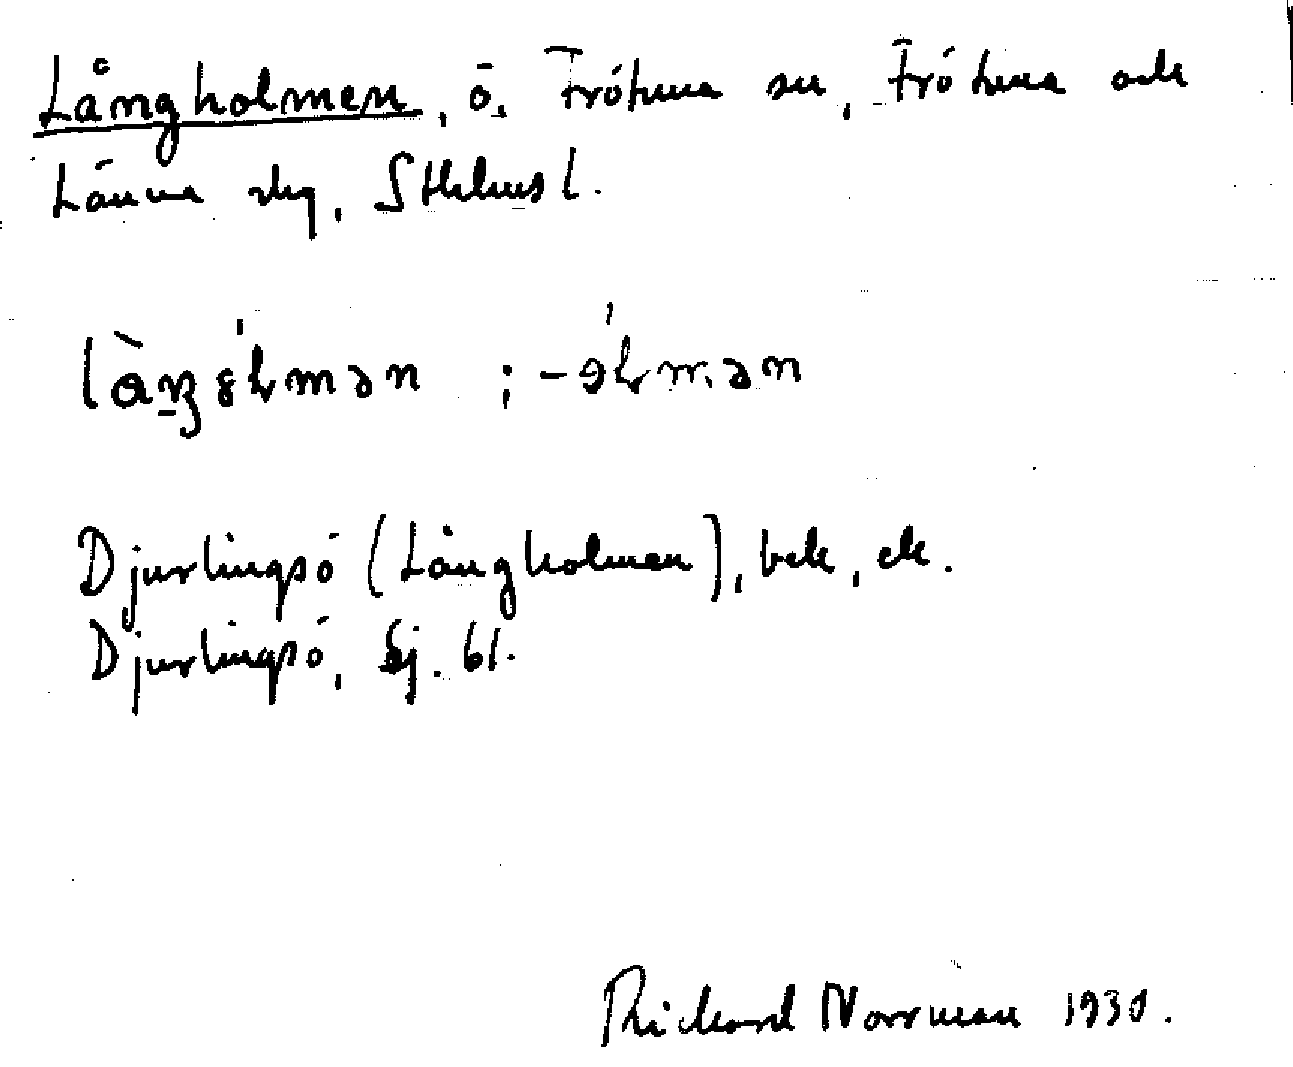 Långholmen, ö. Frötuna sn, Frötuna och
Länna skg, Sthlms l.
Djurlingsö (Långholmen), bek, ek.
Djurlingsö, Sj. 61.
Richard Norrman 1930.